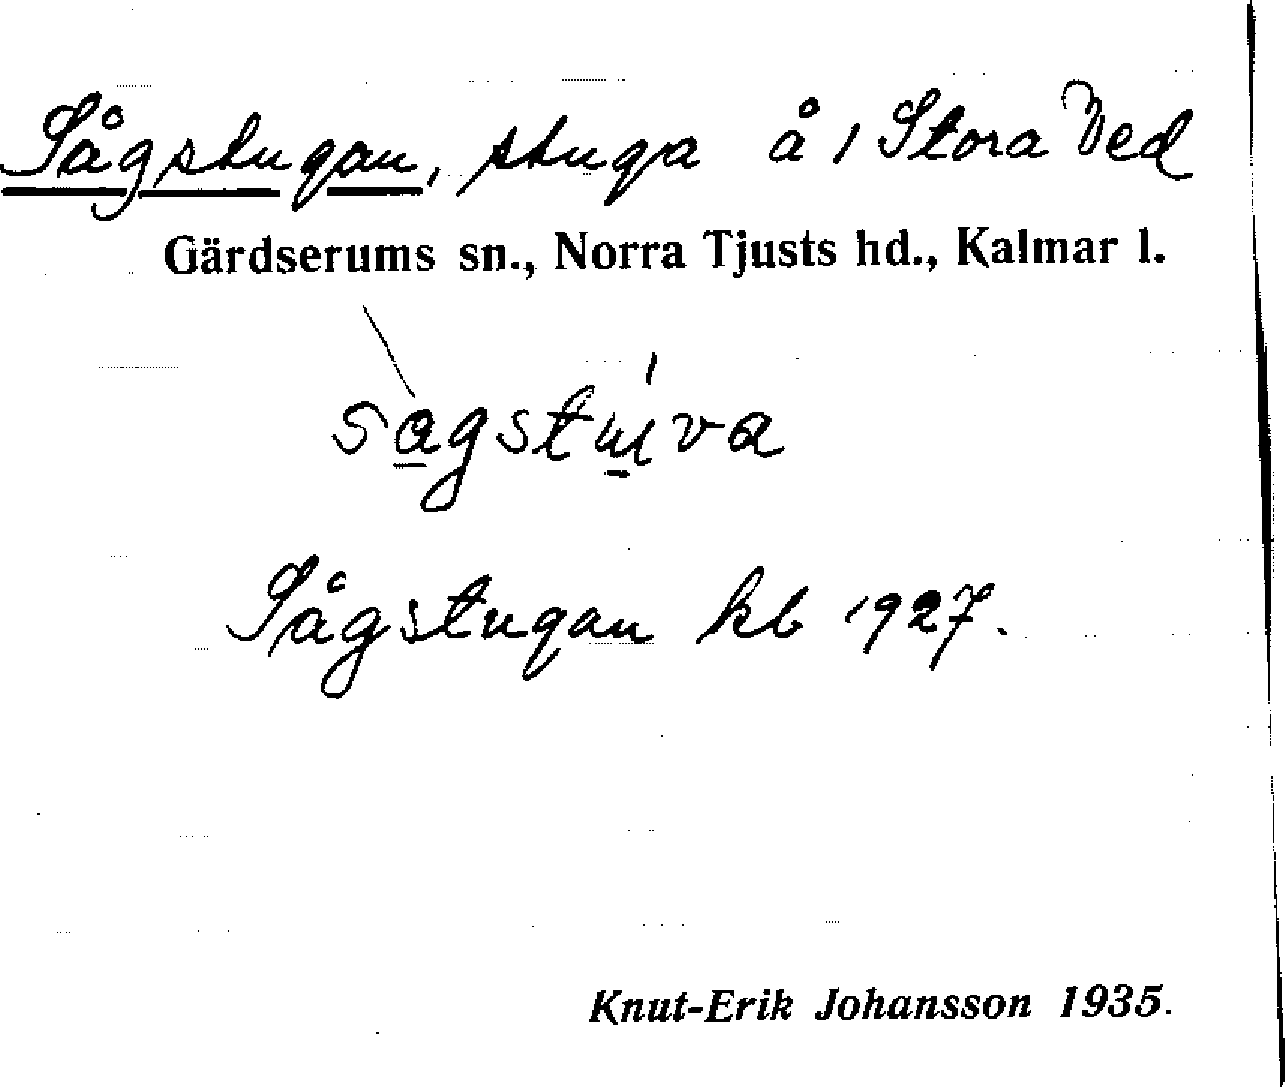 Sågstugan, stuga å 1 Stora Ved
Gärdserums sn., Norra Tjusts hd., Kalmar l.
Sågstugan kb 1927.
Knut-Erik Johansson 1935.